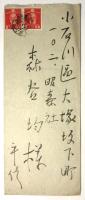 小石川區大塚坂下町
一〇二、昭森社
森谷均様
平信